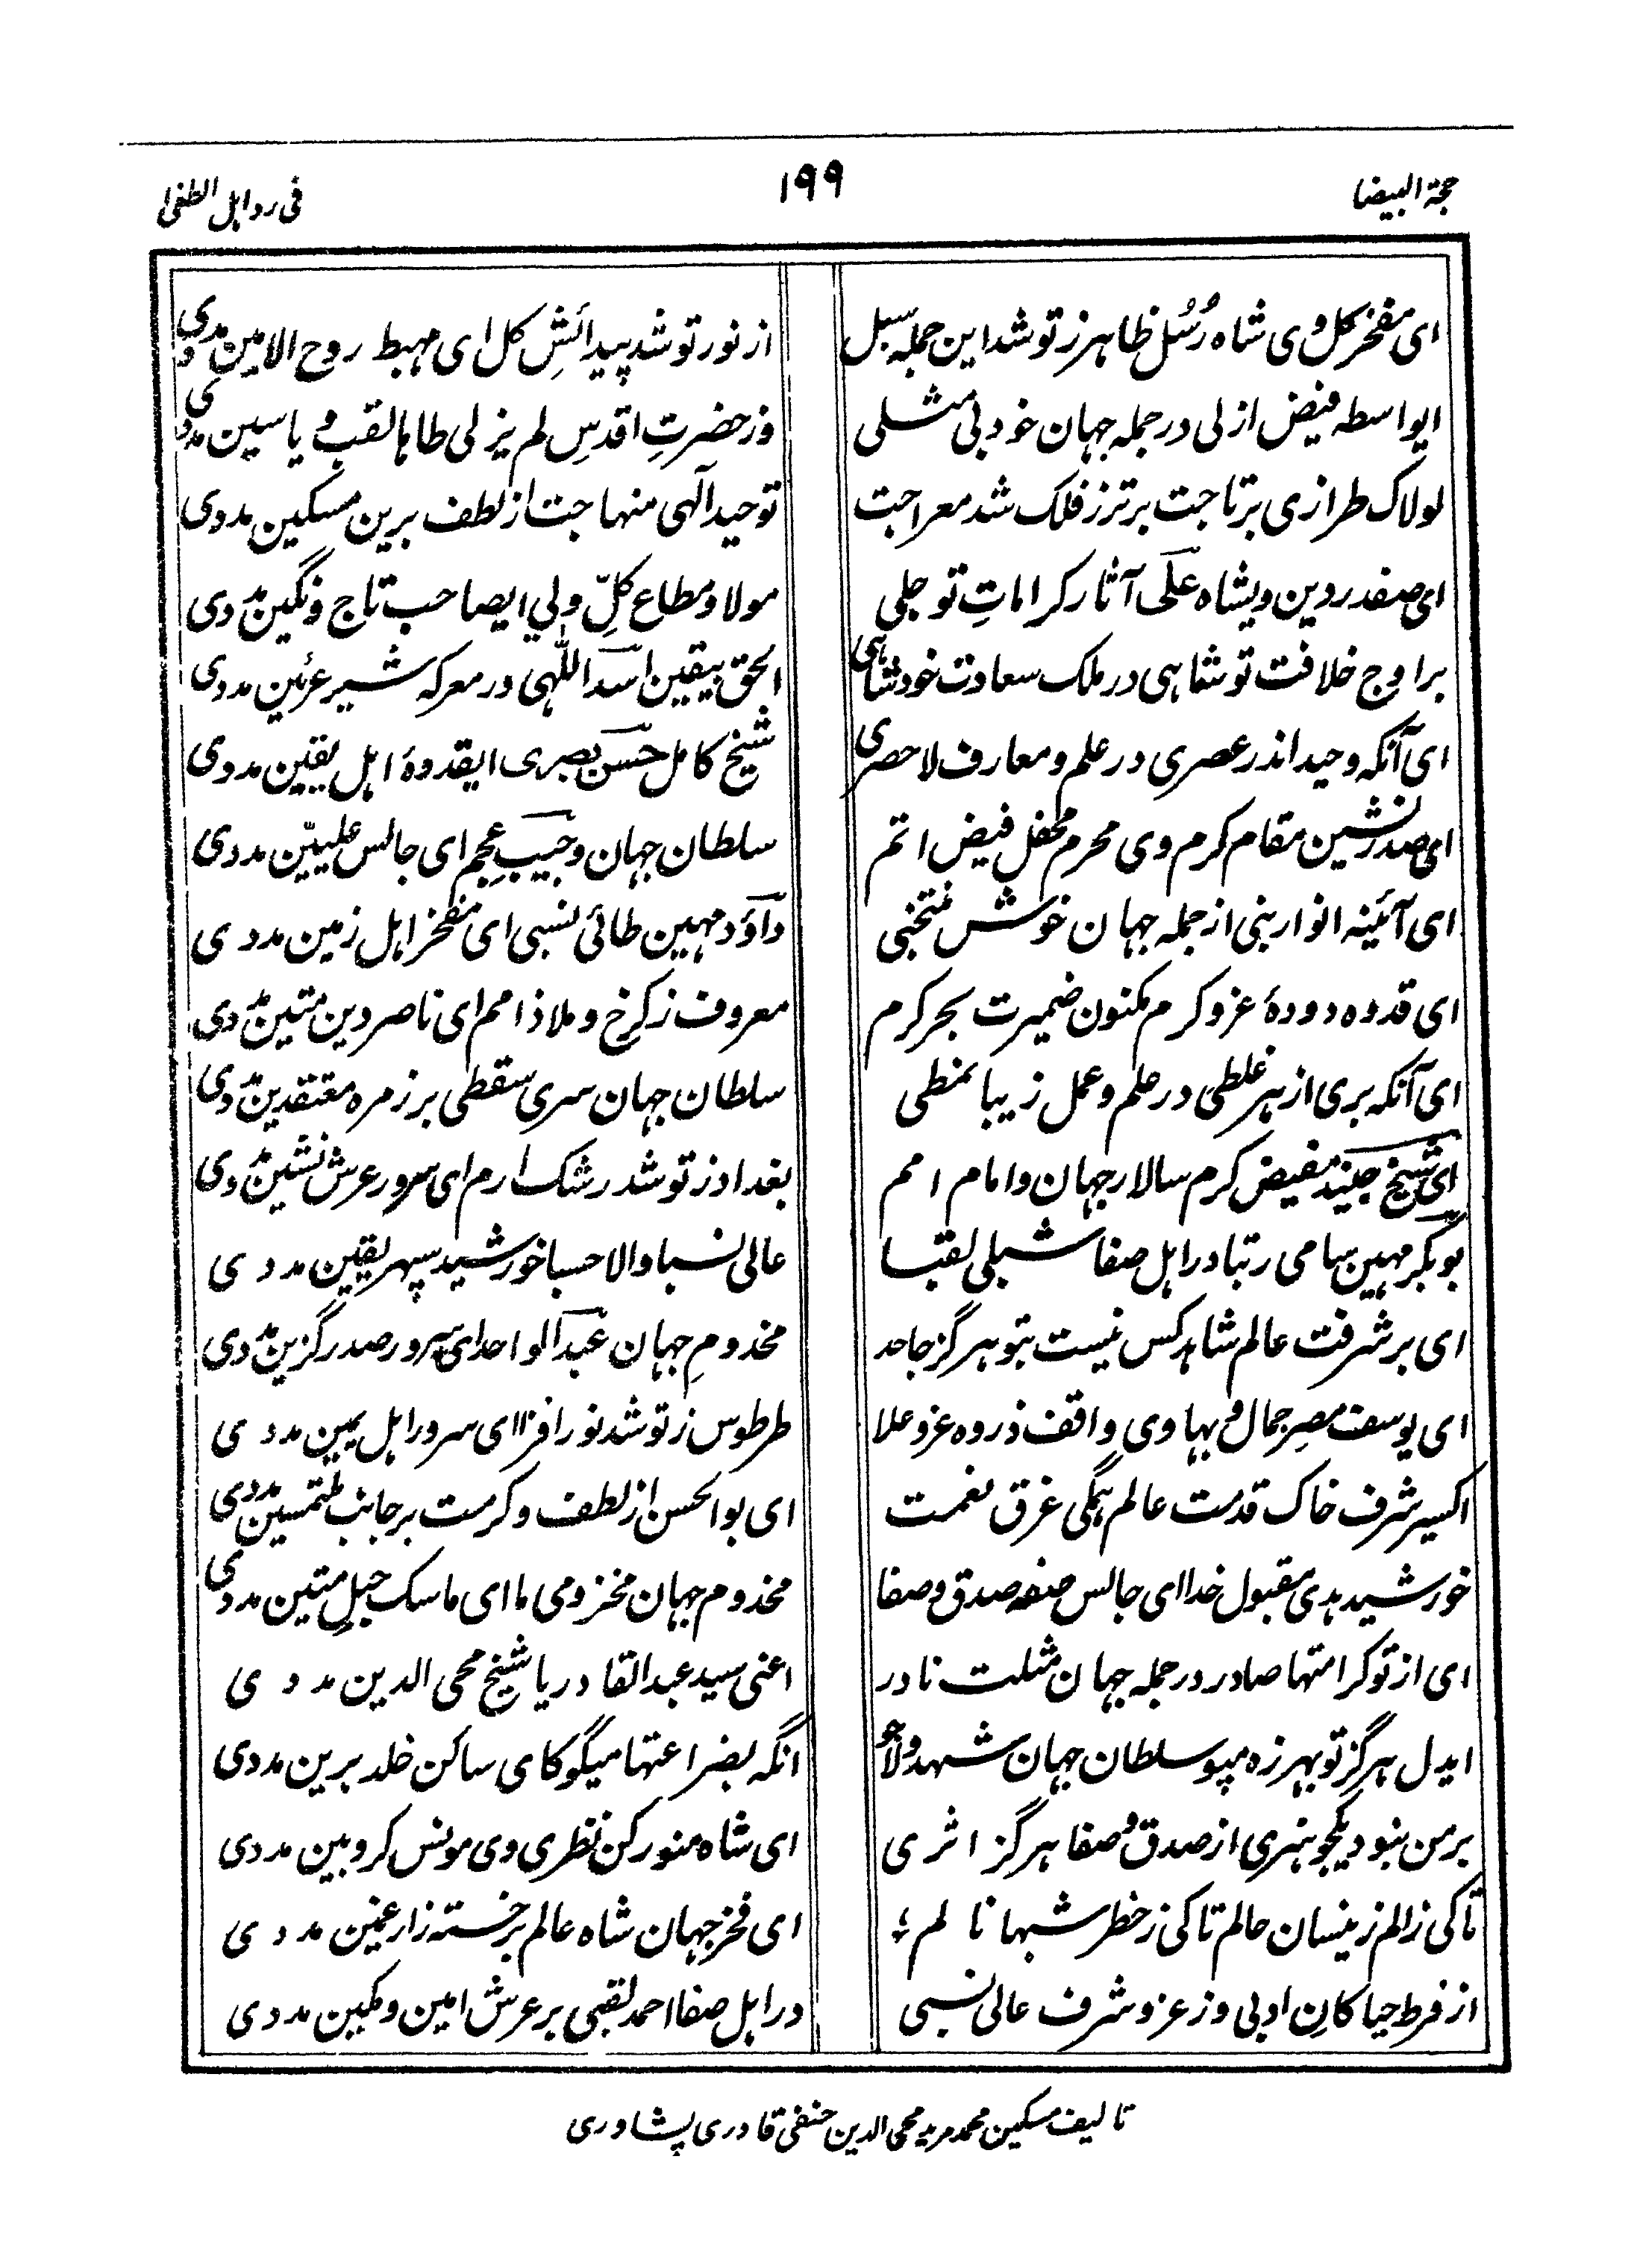 حجة البیضا ۱۹۹ فی رد اہل الطغیٰ
ای مفخر کل وی شاہ رُسُل ظاہر ز تو شد این جملہ سبل از نور تو شد پیدائشِ کل ای مہبط روح الامین مددی
ایواسطہ فیض ازلی در جملہ جہان خود بی مثلی وز حضرتِ اقدسِ لم یزلی طاہا لقب و یاسین مددی
لولاک طرازی بر تاجت برتر ز فلک شد معراجت توحید آلہی منہاجت از لطف برین مسکین مددی
ای صفدر دین ویشاہ علی آثار کراماتِ تو جلی مولا و مطاع کلِّ ولي ایصاحب تاج و نگین مددی
بر اوج خلافت تو شاہی در ملک سعادت خود شاہی الحق بیقین اسد اللّٰہی در معرکہ شیر عرین مددی
ای آنکہ وحید اندر عصری در علم و معارف لا حصری شیخ کامل حسن بصری ایقدوۂ اہل یقین مددی
ای صدر نشین مقام کرم وی محرم محفل فیض اتم سلطان جہان و حبیب عجم ای جالس علییّن مددی
ای آئینہ انوار نبی از جملہ جہان خوش منتخبی داؤد مہین طائی نسبی ای مفخر اہل زمین مددی
ای قدوہ دودۂ عز و کرم مکنون ضمیرت بحر کرم معروف ز کرخ و ملاذ امم ای ناصر دین متین مددی
ای آنکہ بری از ہر غلطی در علم و عمل زیبا نمطی سلطان جہان سری سقطی بر زمرہ معتقدین مددی
ای شیخ جنید مفیض کرم سالار جہان و امام امم بغداد ز تو شد رشک ارم ای سرور عرش نشین مددی
بوبکر مہین سامی رتبا در اہل صفا شبلی لقبا عالی نسبا والا حسبا خورشید سپہر یقین مددی
ای بر شرفت عالم شاہد کس نیست بتو ہرگز جاحد مخدومِ جہان عبد الواحد ای سرور صدر گزین مددی
ای یوسف مصرِ جمال و بہا وی واقف ذروہ عز و علا طرطوس ز تو شد نور افزا ای سرور اہل یمین مددی
اکسیر شرف خاک قدمت عالم ہمگی غرق نعمت ای بو الحسن از لطف و کرمت بر جانب ملتمسین مددی
خورشید ہدی مقبول خدا ای جالس صفہ صدق و صفا مخدوم جہان مخزومی ما ای ماسک حبلِ متین مددی
ای از تو کرامتہا صادر در جملہ جہان مثلت نادر اعنی سید عبد القادر یا شیخ محی الدین مددی
ایدل ہرگز تو بہرزہ مپو سلطان جہان شہد ولا جو انگہ بضراعتہا میگو کای ساکن خلد برین مددی
بر من بنود یکجو ہنری از صدق و صفا ہرگز اثری ای شاہ منور کن نظری وی مونس کروبین مددی
تا کی ز الم زینسان حالم تا کی ز خطر شبہا نالم ؛ ای فخر جہان شاہ عالم بر خستہ زار غمین مددی
از فرط حیا کانِ ادبی وز عز و شرف عالی نسبی در اہل صفا احمد لقبی بر عرش امین و مکین مددی
تالیف مسکین محمد مرید محی الدین حنفی قادری پشاوری